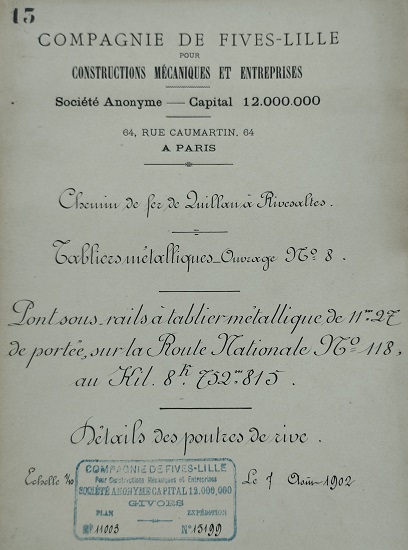 15
COMPAGNIE DE FIVES-LILLE
POUR
CONSTRUCTIONS MÉCANIQUES ET ENTREPRISES
Société Anonyme — Capital 12.000.000
64, RUE CAUMARTIN, 64
A PARIS
Chemin de fer de Quillan à Rivesaltes.
Tabliers métalliques_Ouvrage Nº 8.
Pont sous-rails à tablier métallique de 11m27
de portée, sur la Route Nationale Nº 118,
au Kil. 8k 752m 815.
Détails des poutres de rive.
Echelle
Le 7 Août 1902
COMPAGNIE DE FIVES-LILLE
Pour Constructions Mécaniques et Entreprises
SOCIÉTÉ ANONYME CAPITAL 12.000.000
GIVORS
PLAN EXPÉDITION
Nº 11003 Nº 15199